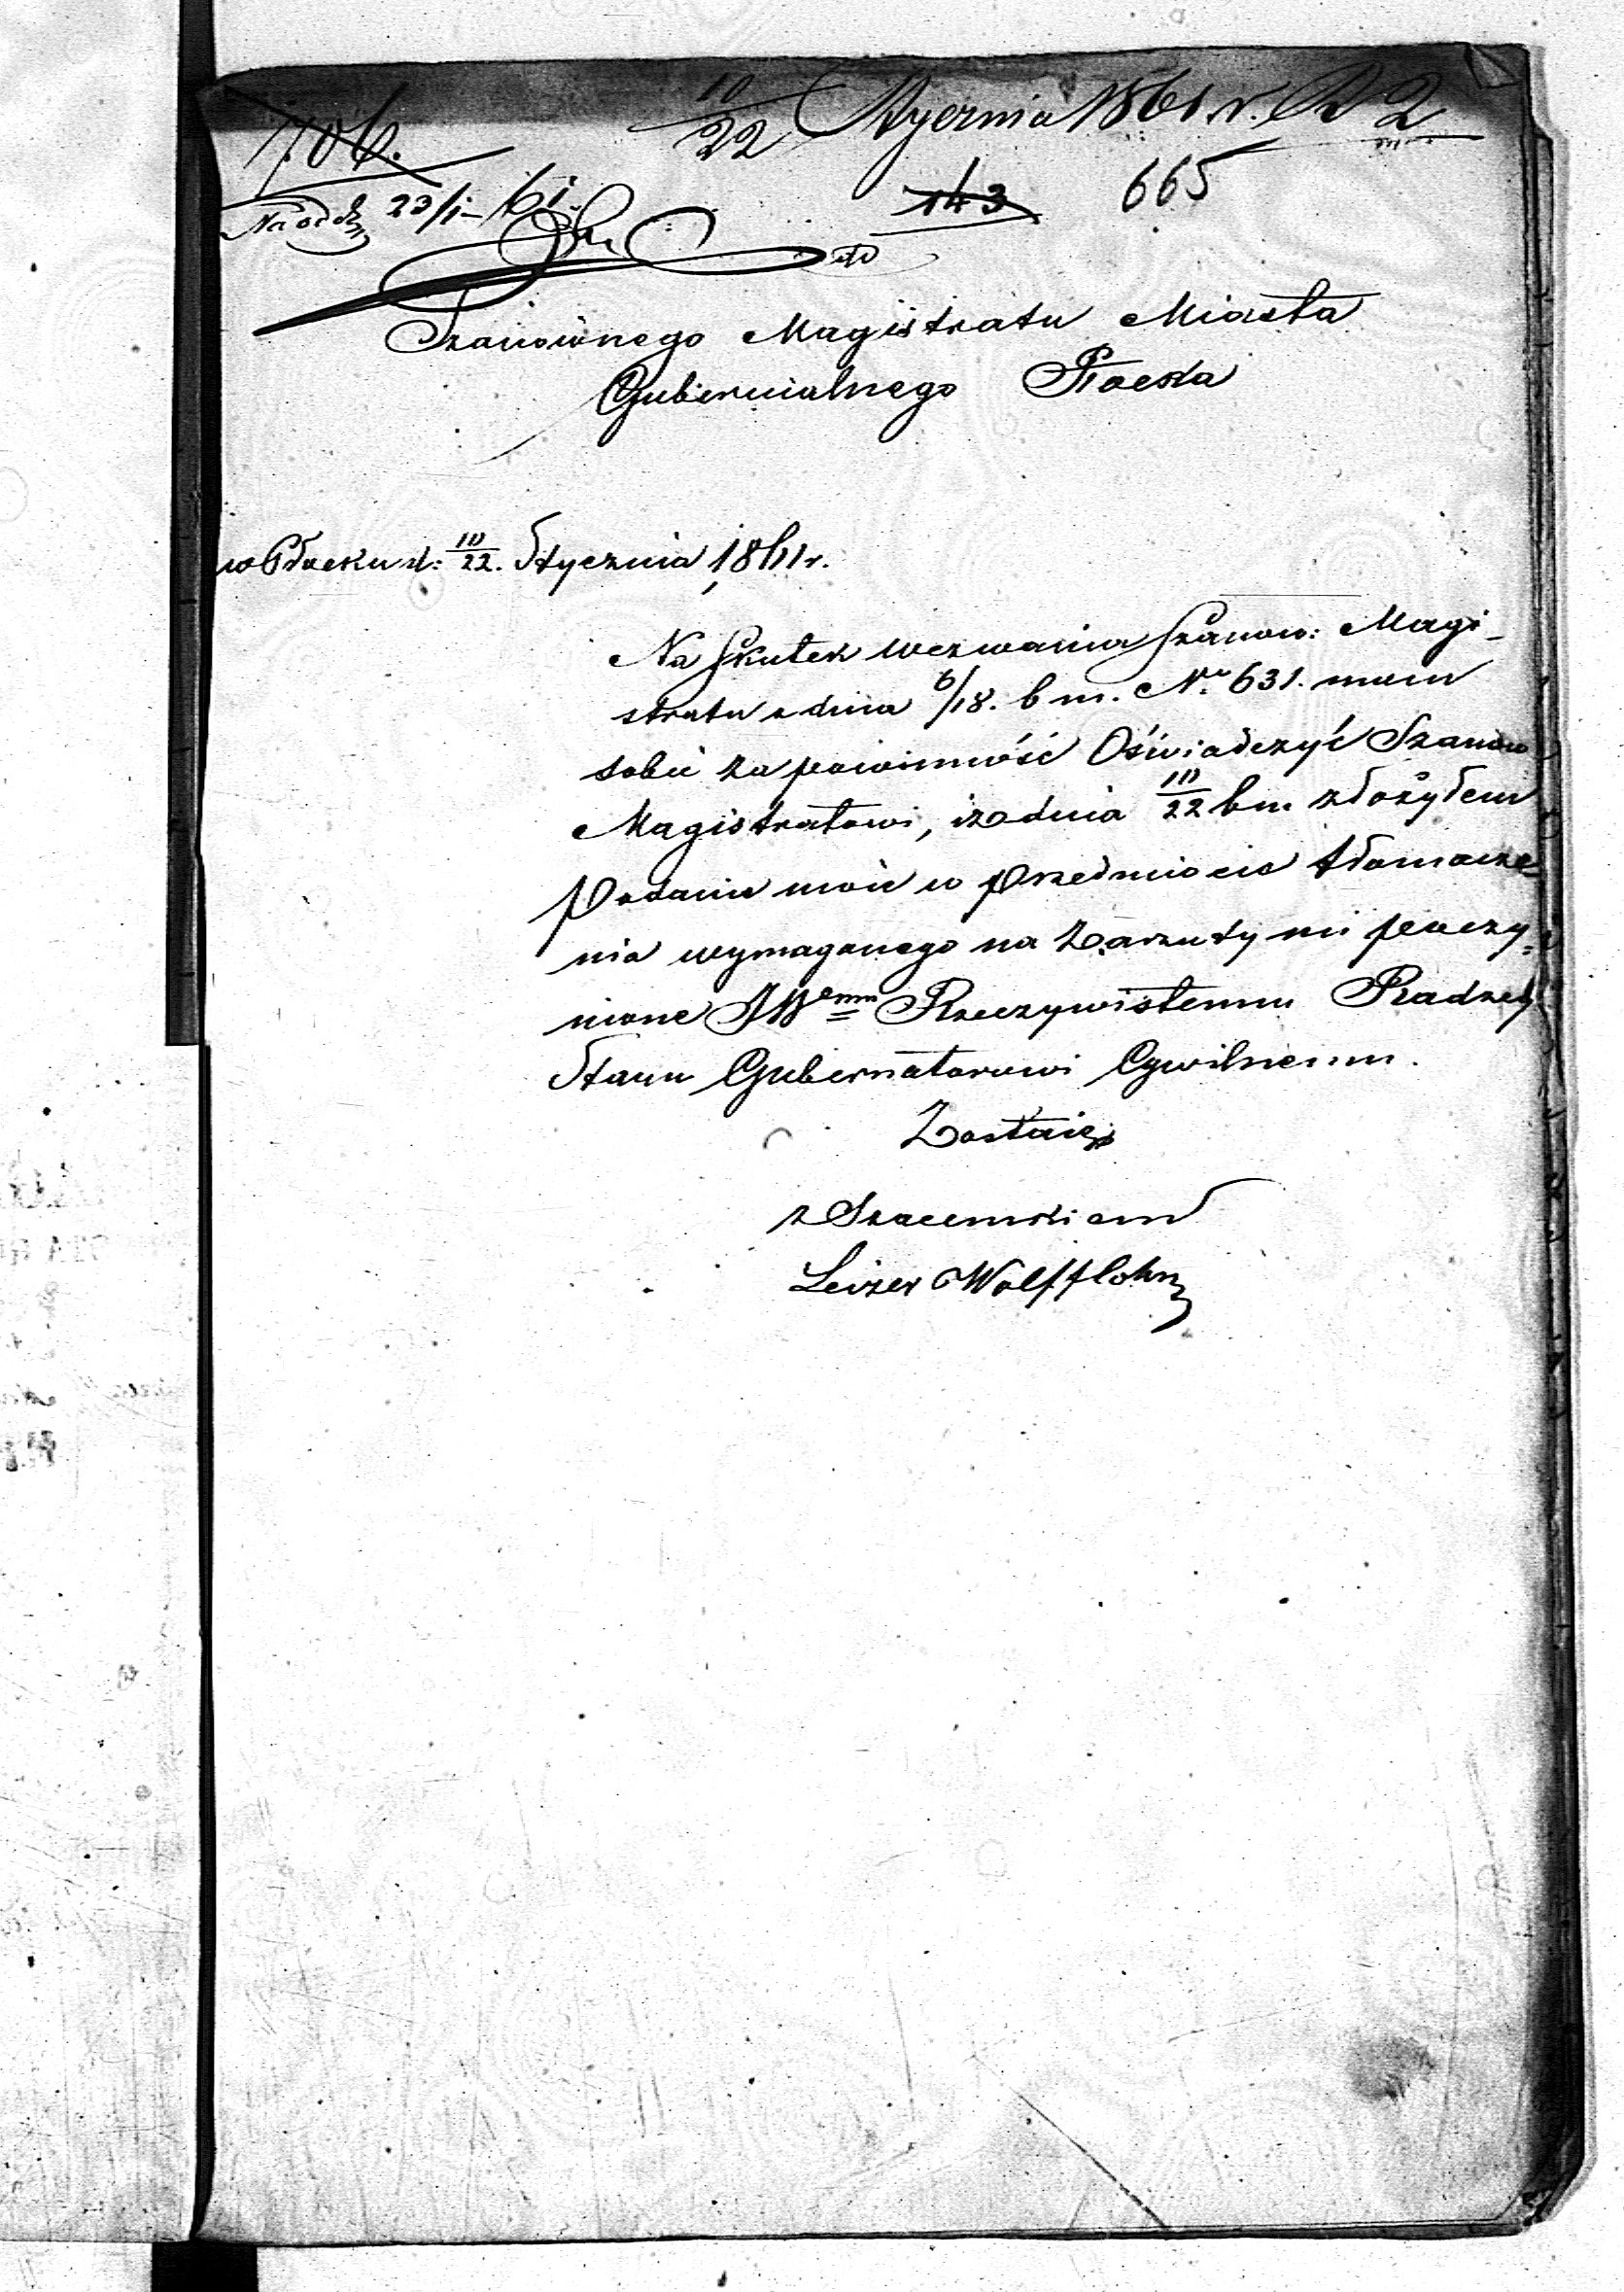 10/22 Stycznia 1861 r. 2
706.
143 665
23/1 61
Szanownego Magistratu Miasta
Gubernialnego Płocka
w Płocku d: 10/22. Stycznia 1861 r.
Na Skutek wezwania Szanow: Magi-
stratu z dnia 6/18. b m. No 631. mam
sobie za powinność Oświadczyć Szanow
Magistratowi, iż dnia 10/22 bm złożyłem
Podanie moie w przedmiocie tłomacze-
nia wymaganego na Zarzuty mi poczy-
nione JWemu Rzeczywistemu Radzcy
Stanu Gubernatorowi Cywilnemu.
Zostaię
z Szacunkiem
Leizer Wolffsohn